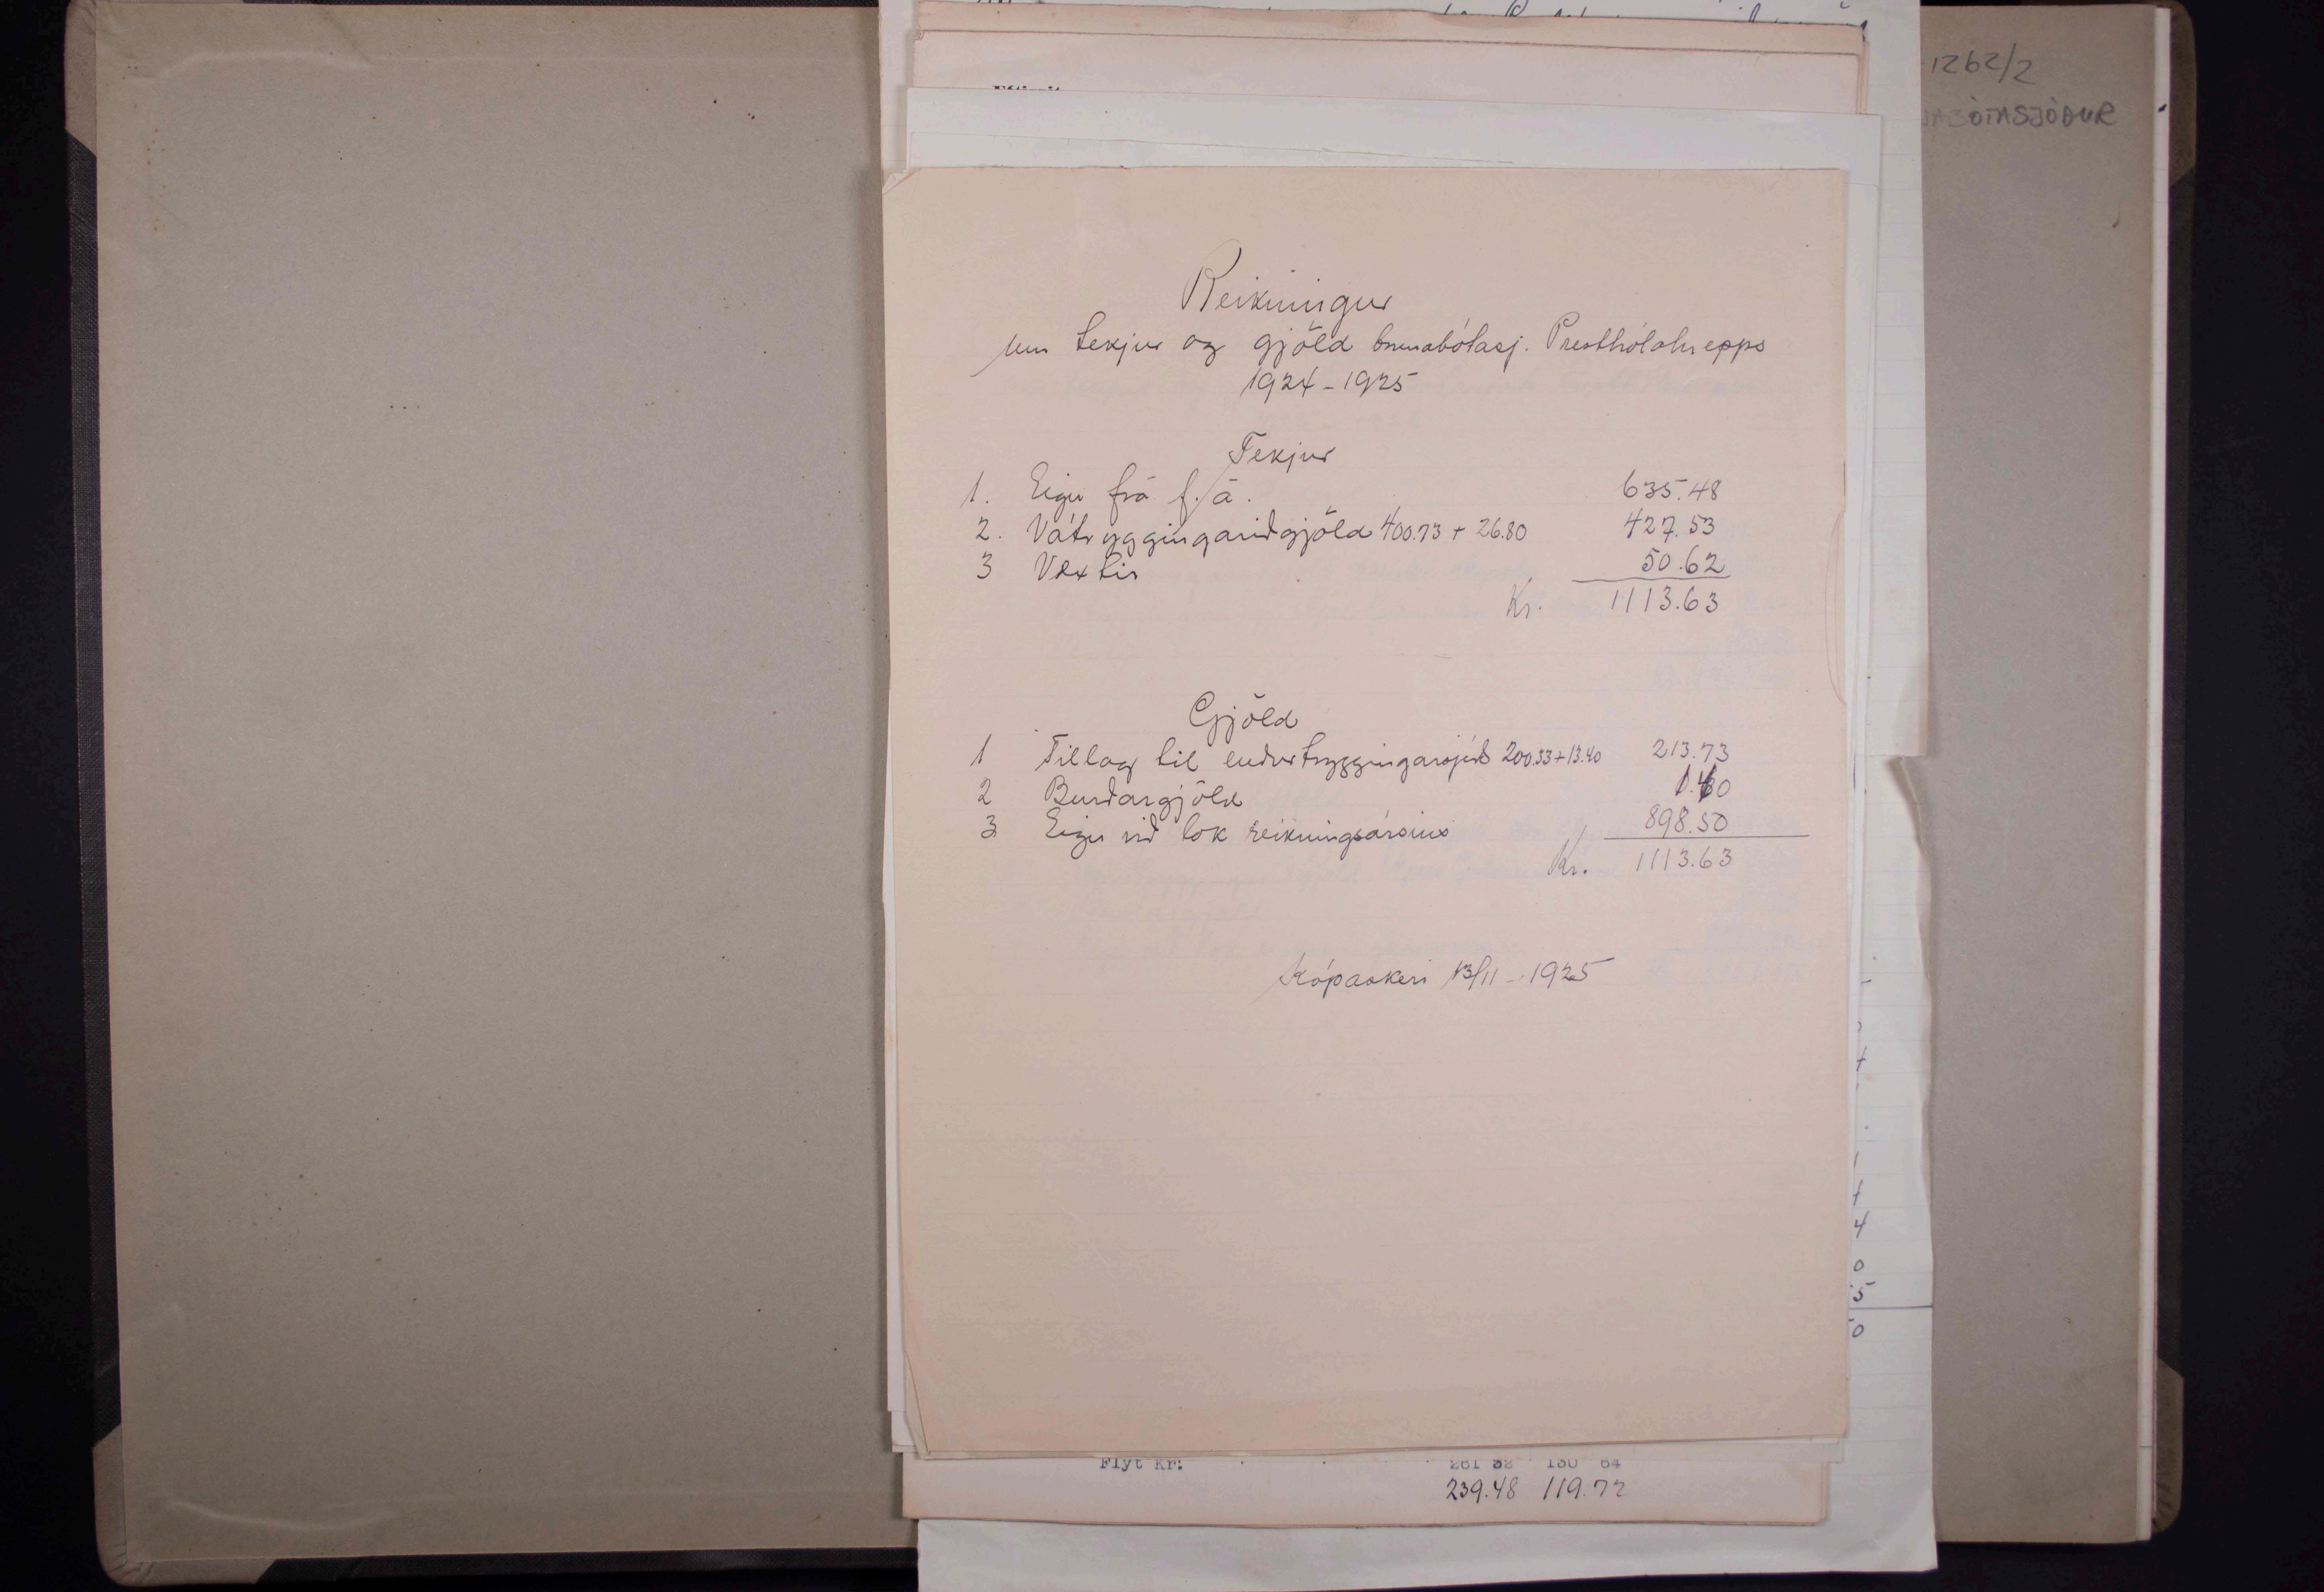 -1262/2
ABÓTASJÓÐUR
Reikningur
um tekjur og gjöld brunabótasj. Presthólahrepps
1924-1925
Tekjur
1. Eign frá f. á. 635.48
2. Vátryggingariðgjöld 400.73 + 26.80 427.53
3 Vextir 50.62
Kr. 1113.63
Gjöld
1 Tillag til endurtryggingarsjóðs 200.33+13.40 213.73
2 Burðargjöld 1.40
3 Eign við lok reikningsársins 898.50
Kr. 1113.63
Kópaskeri 13/11-1925
4
0
5
0
Flyt kr: 261 32 130 64
239.48 119.72